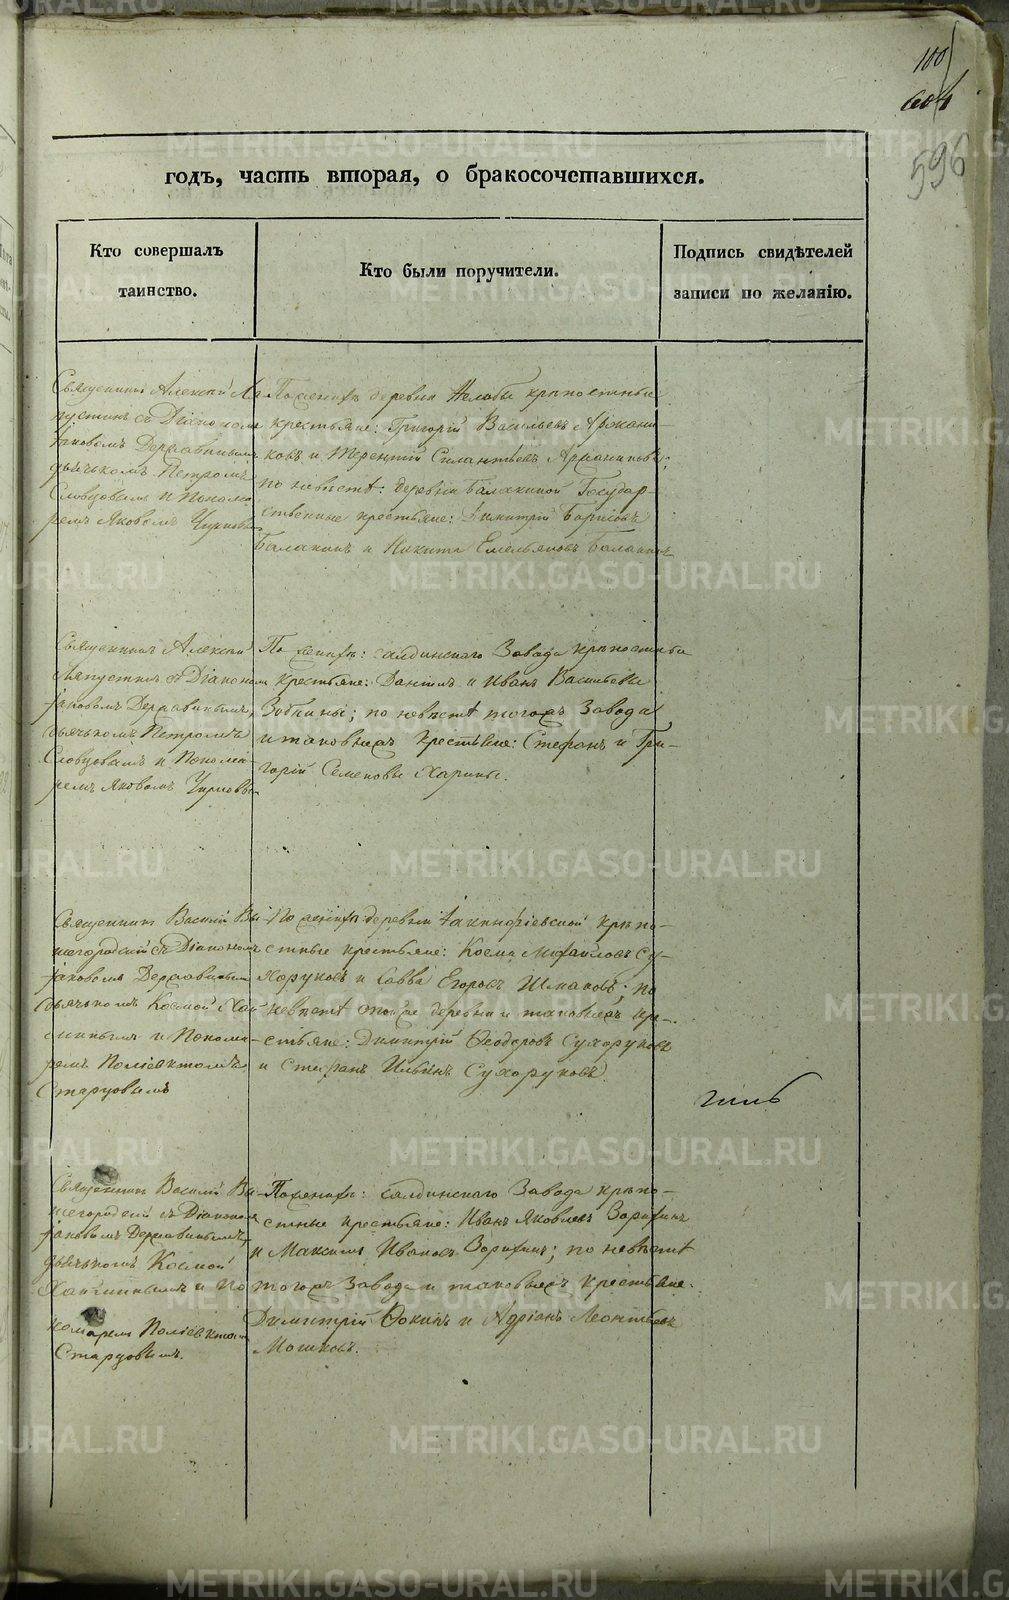 100
604
596
годъ, часть вторая, о бракосочетавшихся.
Кто совершалъ
таинство.
Кто были поручители.
Подпись свидѣтелей
записи по желанію.
Священникъ Алексѣй Ла-
пустинъ съ Діакономъ
Іаковомъ Державинымъ
дьячькомъ Петромъ
Словцовымъ и Понома
ремъ Яковомъ
По женихѣ деревни Нелобы крѣпостные
крестьяне: Григорій Васильевъ
ковъ и Терентій Силантьевъ
по невѣстѣ: деревни Балакиной Государ-
ственные крестьяне: Димитрій Борисовъ
Балакинъ и Никита Емельяновъ Балакинъ
Священникъ Алексѣй
Лапустинъ съ Діакономъ
Іаковомъ Державинымъ,
дьячькомъ Петромъ
Словцовымъ и Понома-
ремъ Яковомъ
По женихѣ: салдинскаго Завода крѣпостные
крестьяне: Даніилъ и Иванъ Васильевы
Зобнины; по невѣстѣ тогожъ Завода
и таковыежъ крестьяне: Стефанъ и Гри-
горій Семеновы Харины.
Священникъ Василій Вы-
шегородскій съ Діакономъ
Іаковомъ Державинымъ
дьячькомъ Космой
и Понома-
ремъ Поліевктомъ
Старцовымъ
По женихѣ деревни Іакинфіевской крѣпо-
стные крестьяне: Косма Михайловъ Су-
хоруковъ и Савва Егоровъ Шмаковъ; по
невѣстѣ тойже деревни и таковыежъ кре-
стьяне: Димитрій Ѳеодоровъ Сухоруковъ
и Стефанъ Ильинъ Сухоруковъ.
Священникъ Василій Вы-
шегородскій съ Діакономъ
Іаковомъ Державинымъ,
дьячькомъ Космой
и По
номаремъ Поліевктомъ
Старцовымъ.
По женихѣ: салдинскаго Завода крѣпо-
стные крестьяне: Иванъ Яковлевъ Зорихинъ
и Максимъ Ивановъ Зорихинъ; по невѣстѣ
тогожъ Завода и таковыежъ крестьяне.
Димитрій Ѳокинъ и Адріанъ Леонтьевъ
Мошковъ.
METRIKI.GASO-URAL.RU